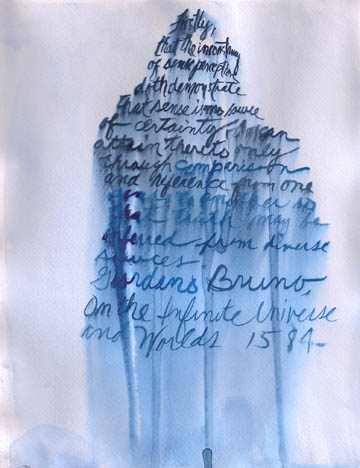 Firstly,
that the inconstancy
of sense perception
doth demonstrate
that sense is no source
of certainty, but can
attain thereto only
through comparison
and reference from one
to another so
truth may be
inferred from diverse
sources
Giordano Bruno,
On the Infinite Universe
and Worlds 1584